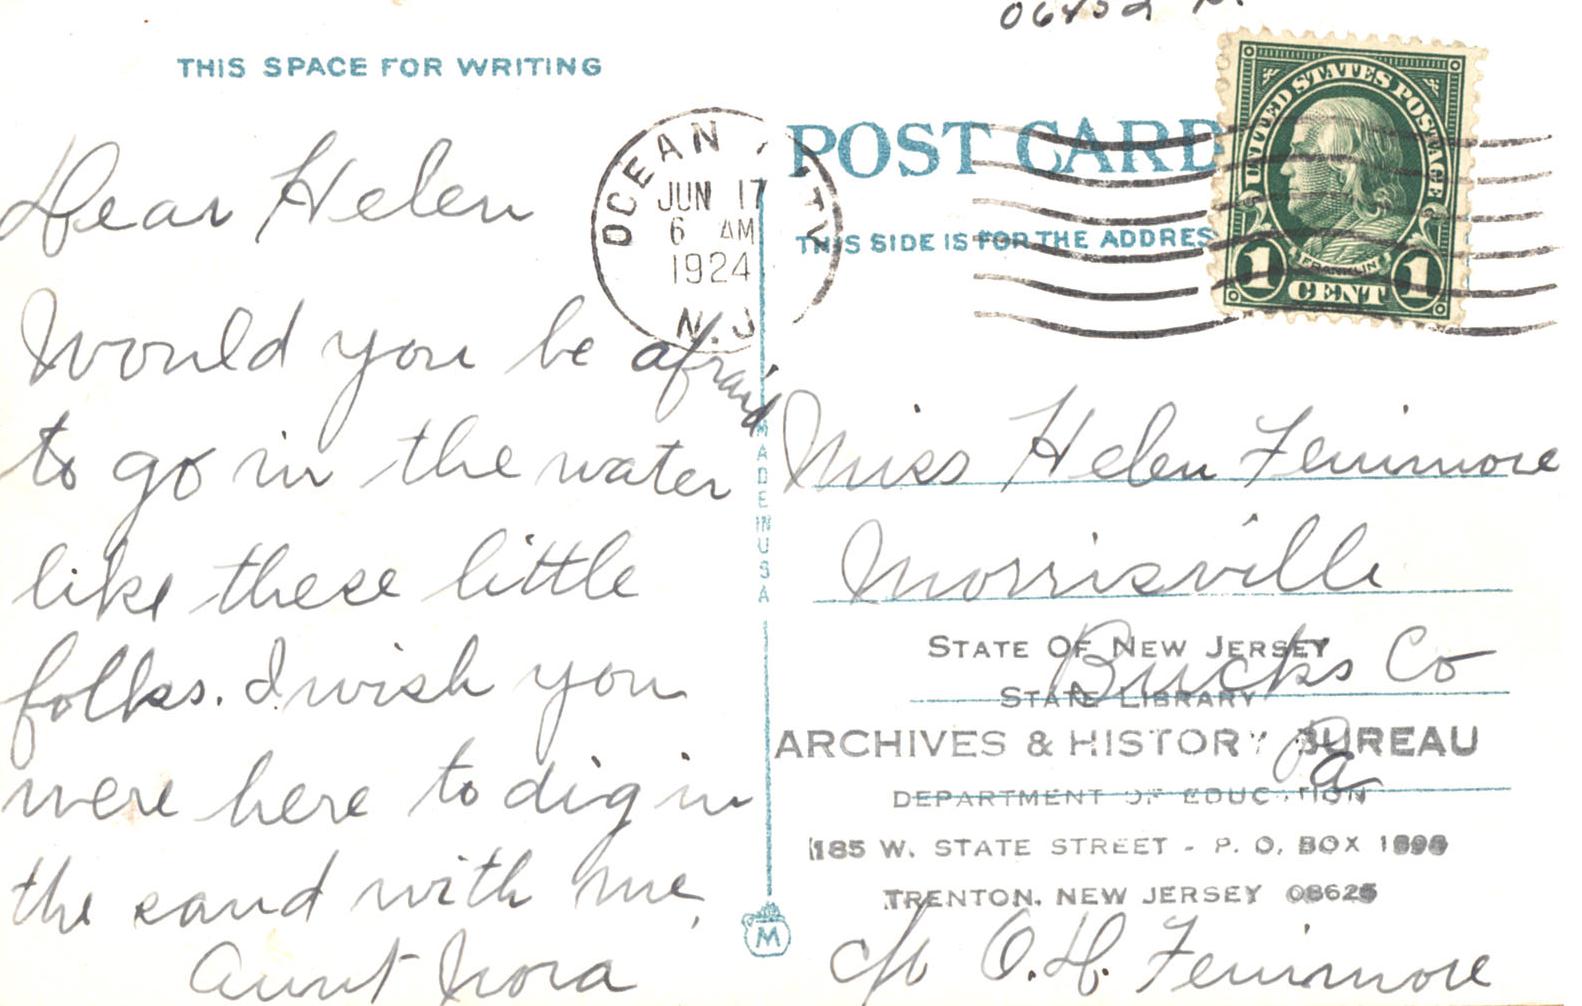 THIS SPACE FOR WRITING
Dear Helen
Would you be afraid
to go in the water
like these little
folks. I wish you
were here to dig in
the sand with me,
Aunt Nora
OCEAN
JUN 17
6 AM
1924
N.J
POST CARD
THIS SIDE IS FOR THE ADDRES
UNITED STATES POSTAGE
FRANKLIN
1 CENT 1
MADE IN USA
M
Miss Helen Fenimore
Morrisville
Bucks Co
Pa
c/o O.H. Fenimore
STATE OF NEW JERSEY
STATE LIBRARY
ARCHIVES & HISTORY BUREAU
DEPARTMENT OF EDUCATION
185 W. STATE STREET - P. O. BOX
TRENTON, NEW JERSEY 08625